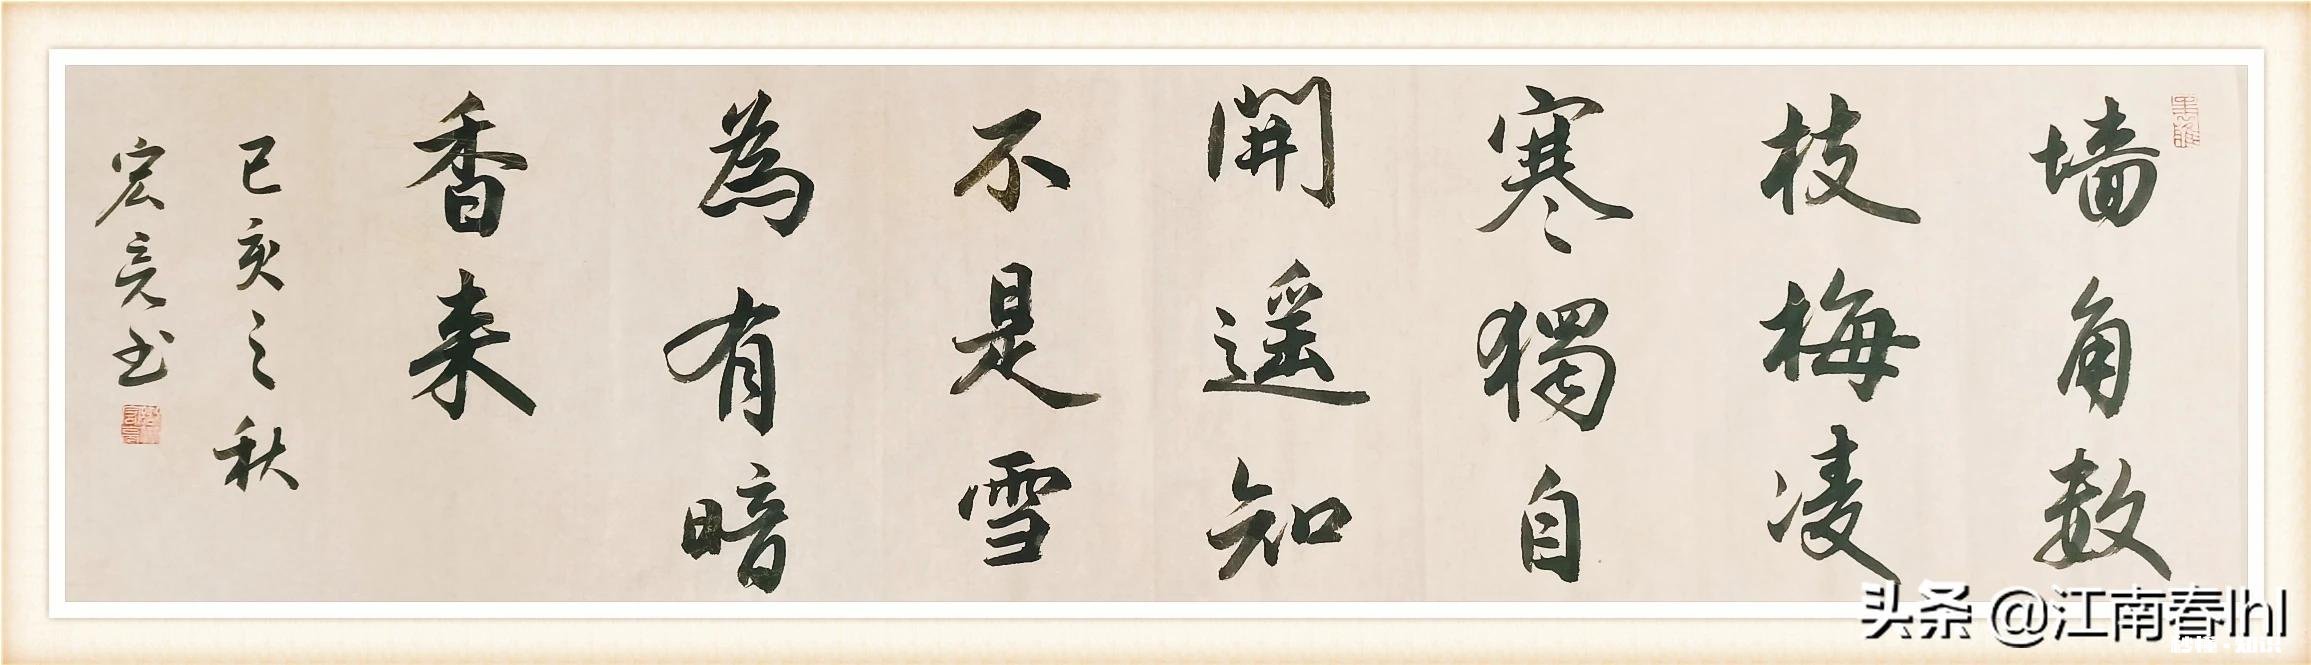 墙角数
枝梅凌
寒獨自
開遥知
不是雪
為有暗
香来
己亥之秋
宏亮书
头条 @江南春lhl